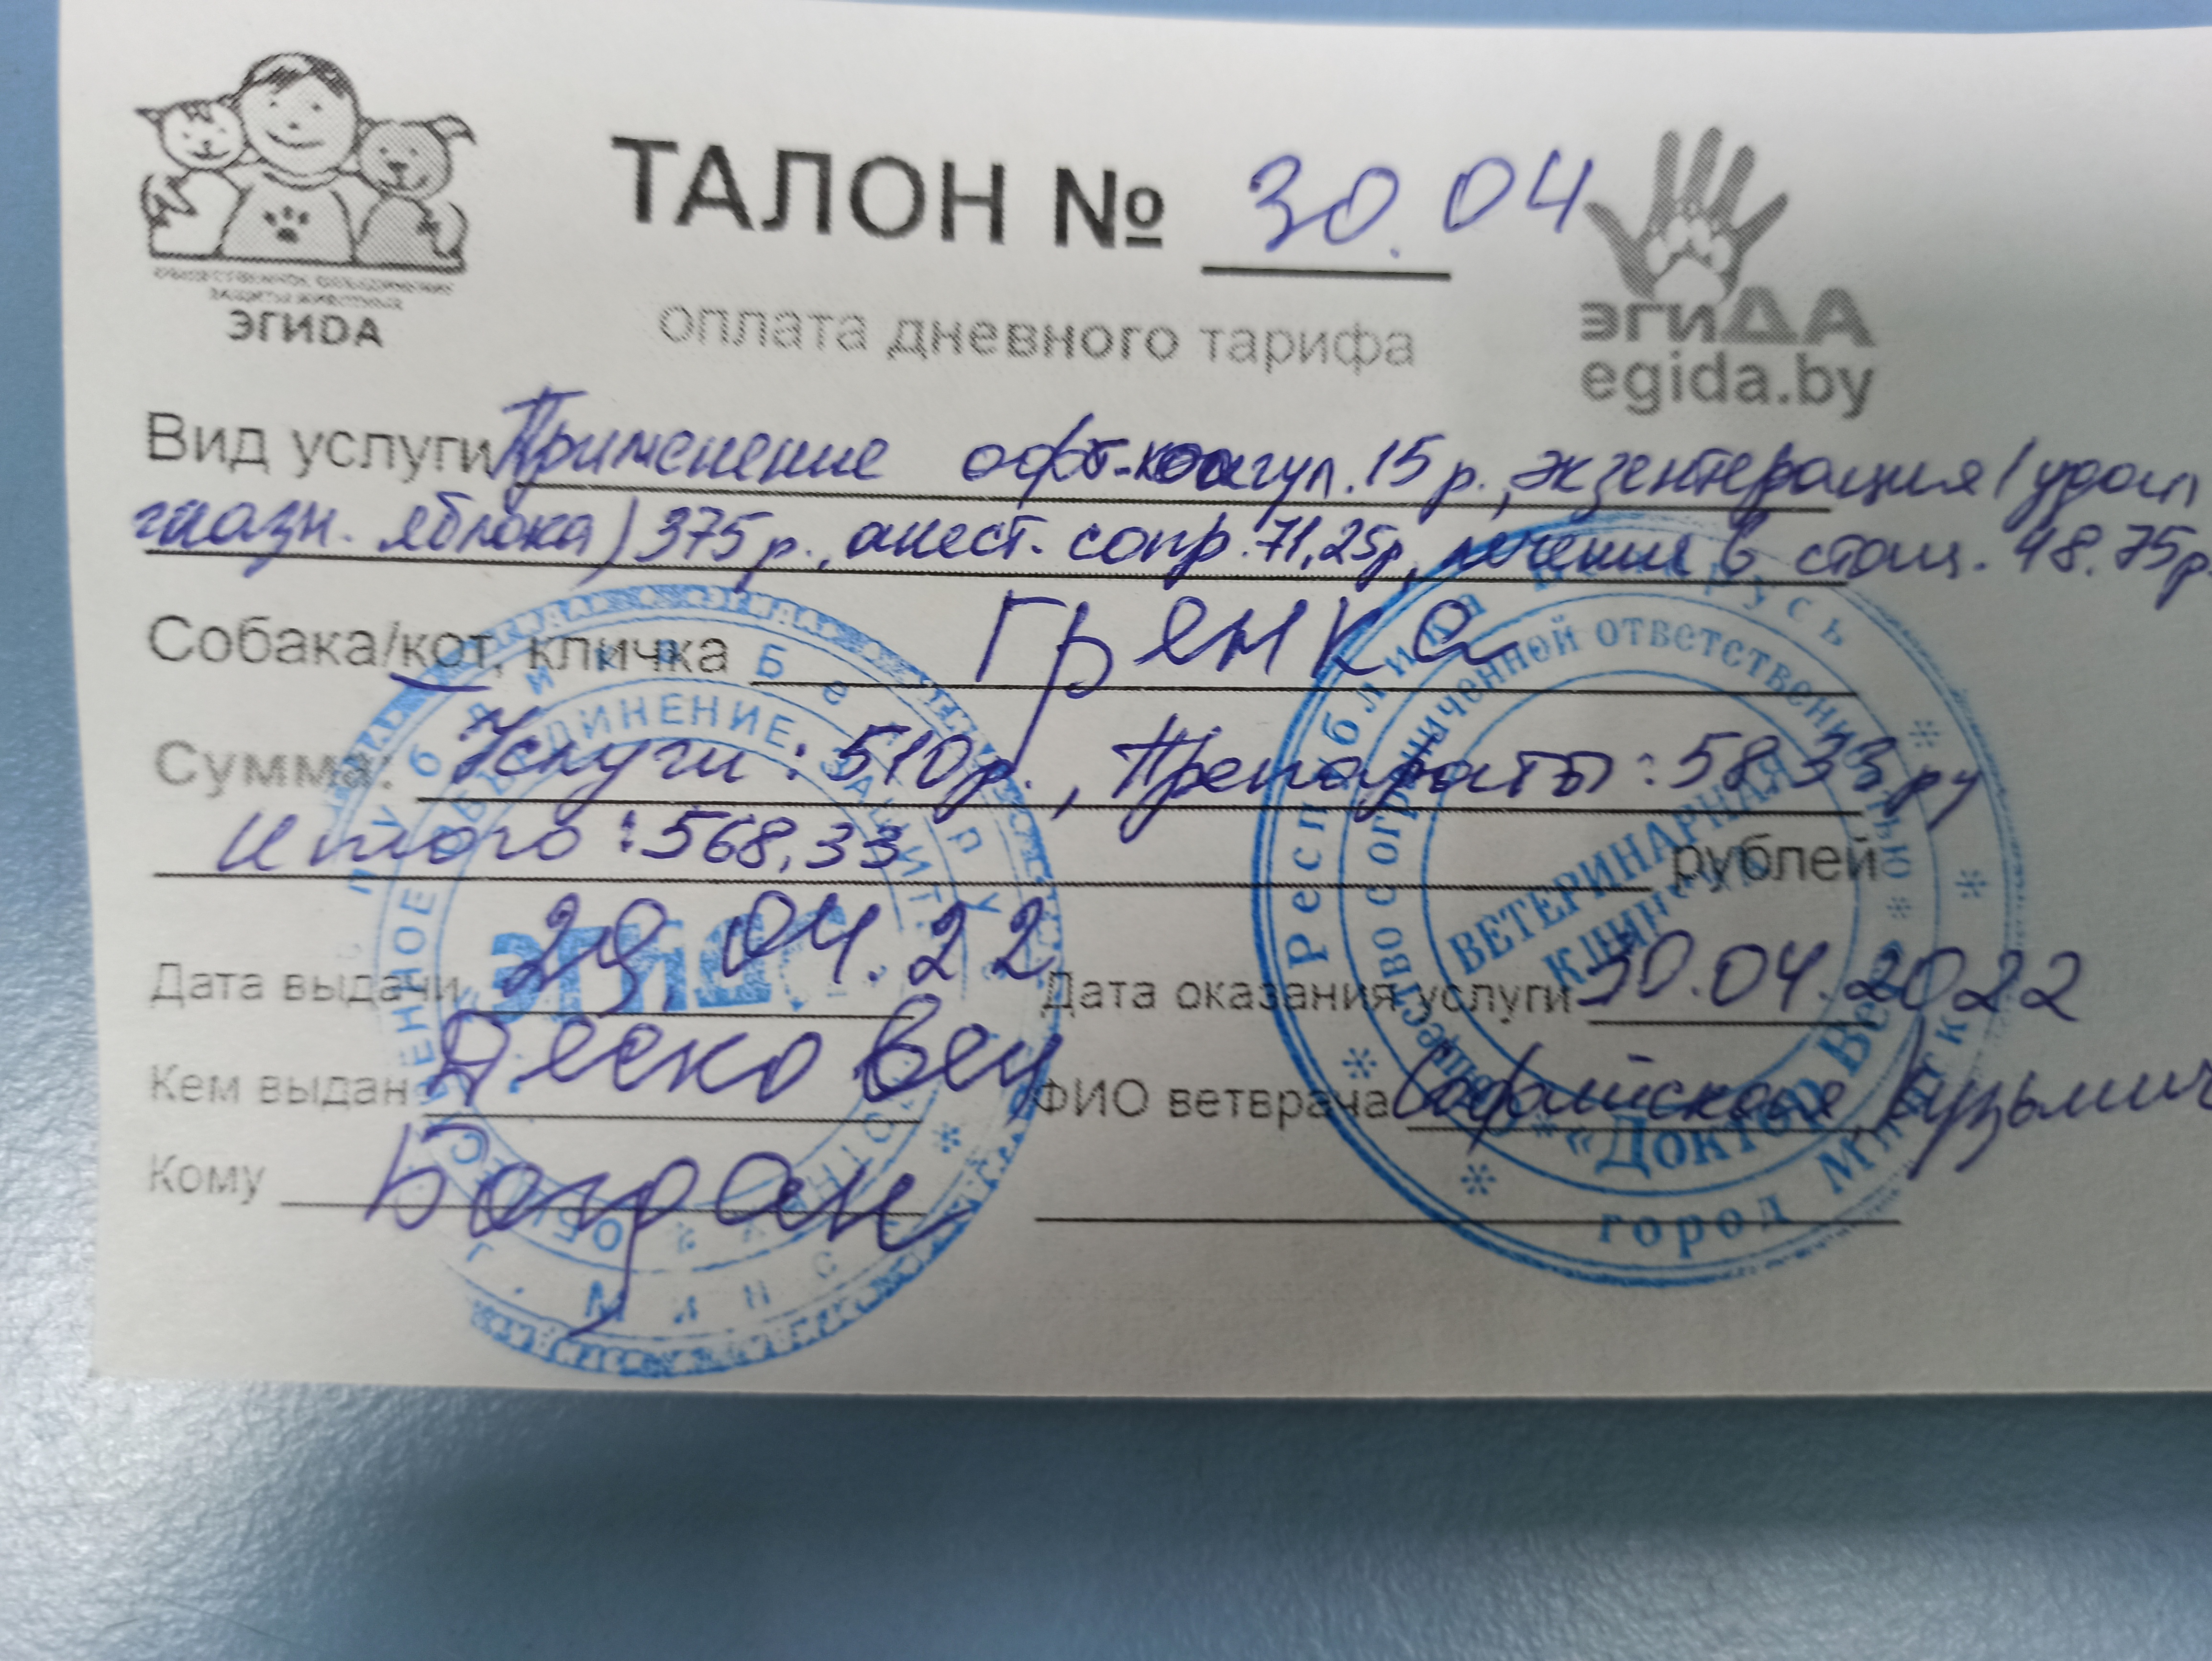 ОБЩЕСТВЕННОЕ ОБЪЕДИНЕНИЕ
ЗАЩИТЫ ЖИВОТНЫХ
ЭГИDА
ТАЛОН № 30.04
оплата дневного тарифа
эгиДА
egida.by
Вид услуги Применение офт-коагул. 15 р., экзентерация (удал
глазн. яблока) 375 р., анест. сопр. 71,25р, лечение в стац. 48.75р.
Собака/кот, кличка Гренка
Сумма: Услуги: 510р., Препараты: 58,33 ру
Итого: 568,33 рублей
Дата выдачи 29.04.22 Дата оказания услуги 30.04.2022
Кем выдан ФИО ветврача Кузьмич
Кому
Республика Беларусь
Общество с ограниченной ответственностью
ВЕТЕРИНАРНАЯ
КЛИНИКА
«Доктор Вет»
город Минск